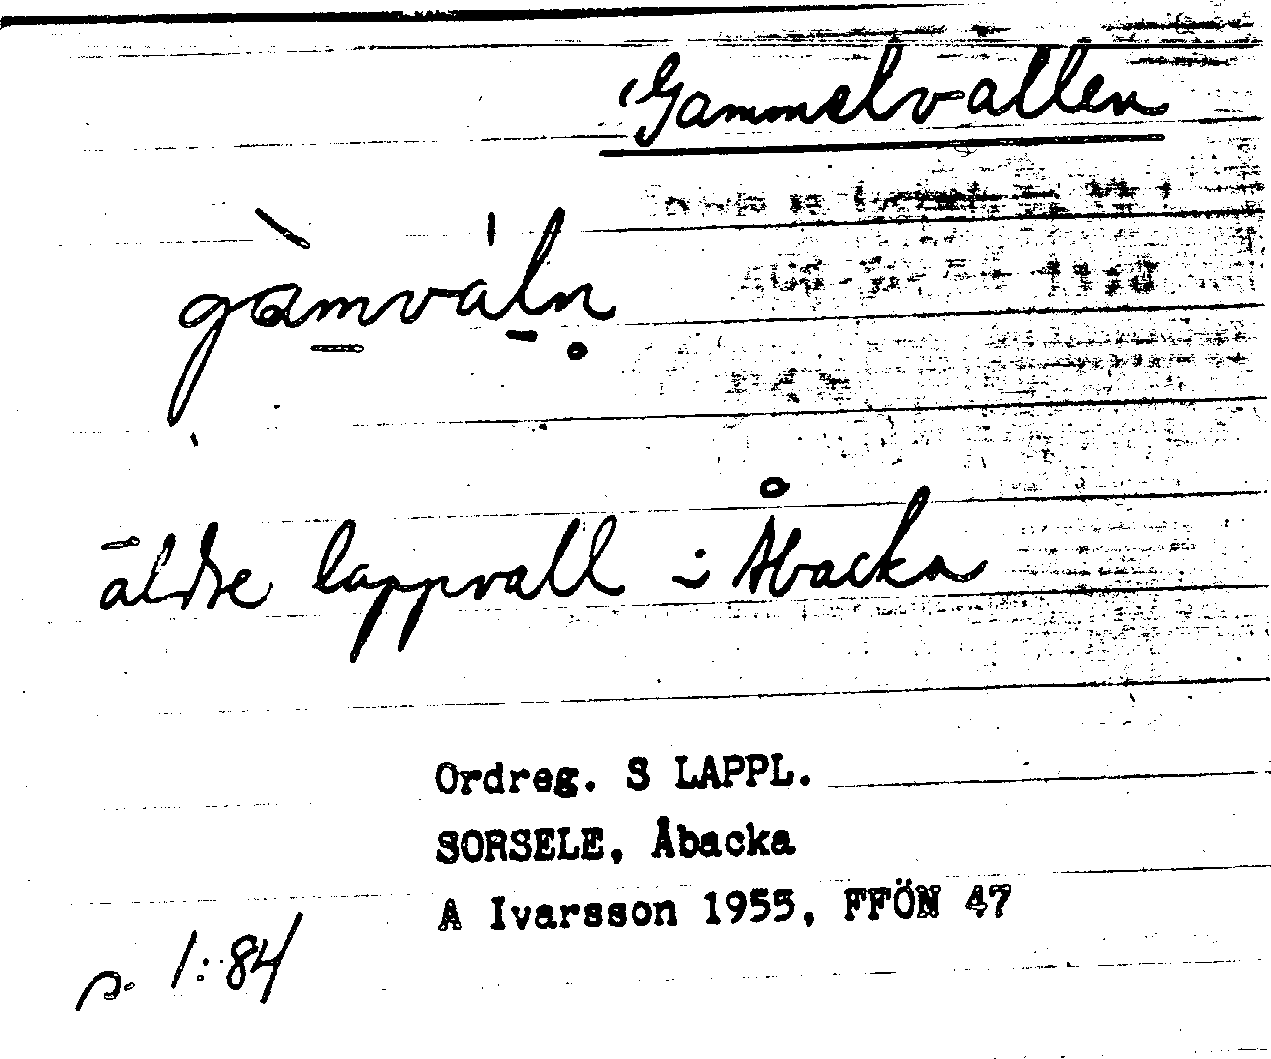 Gammelvallen
gàm̱váḻn̥
äldre lappvall i Åbacka
Ordreg. S LAPPL.
SORSELE, Åbacka
A Ivarsson 1955, FFÖN 47
s. 1:84